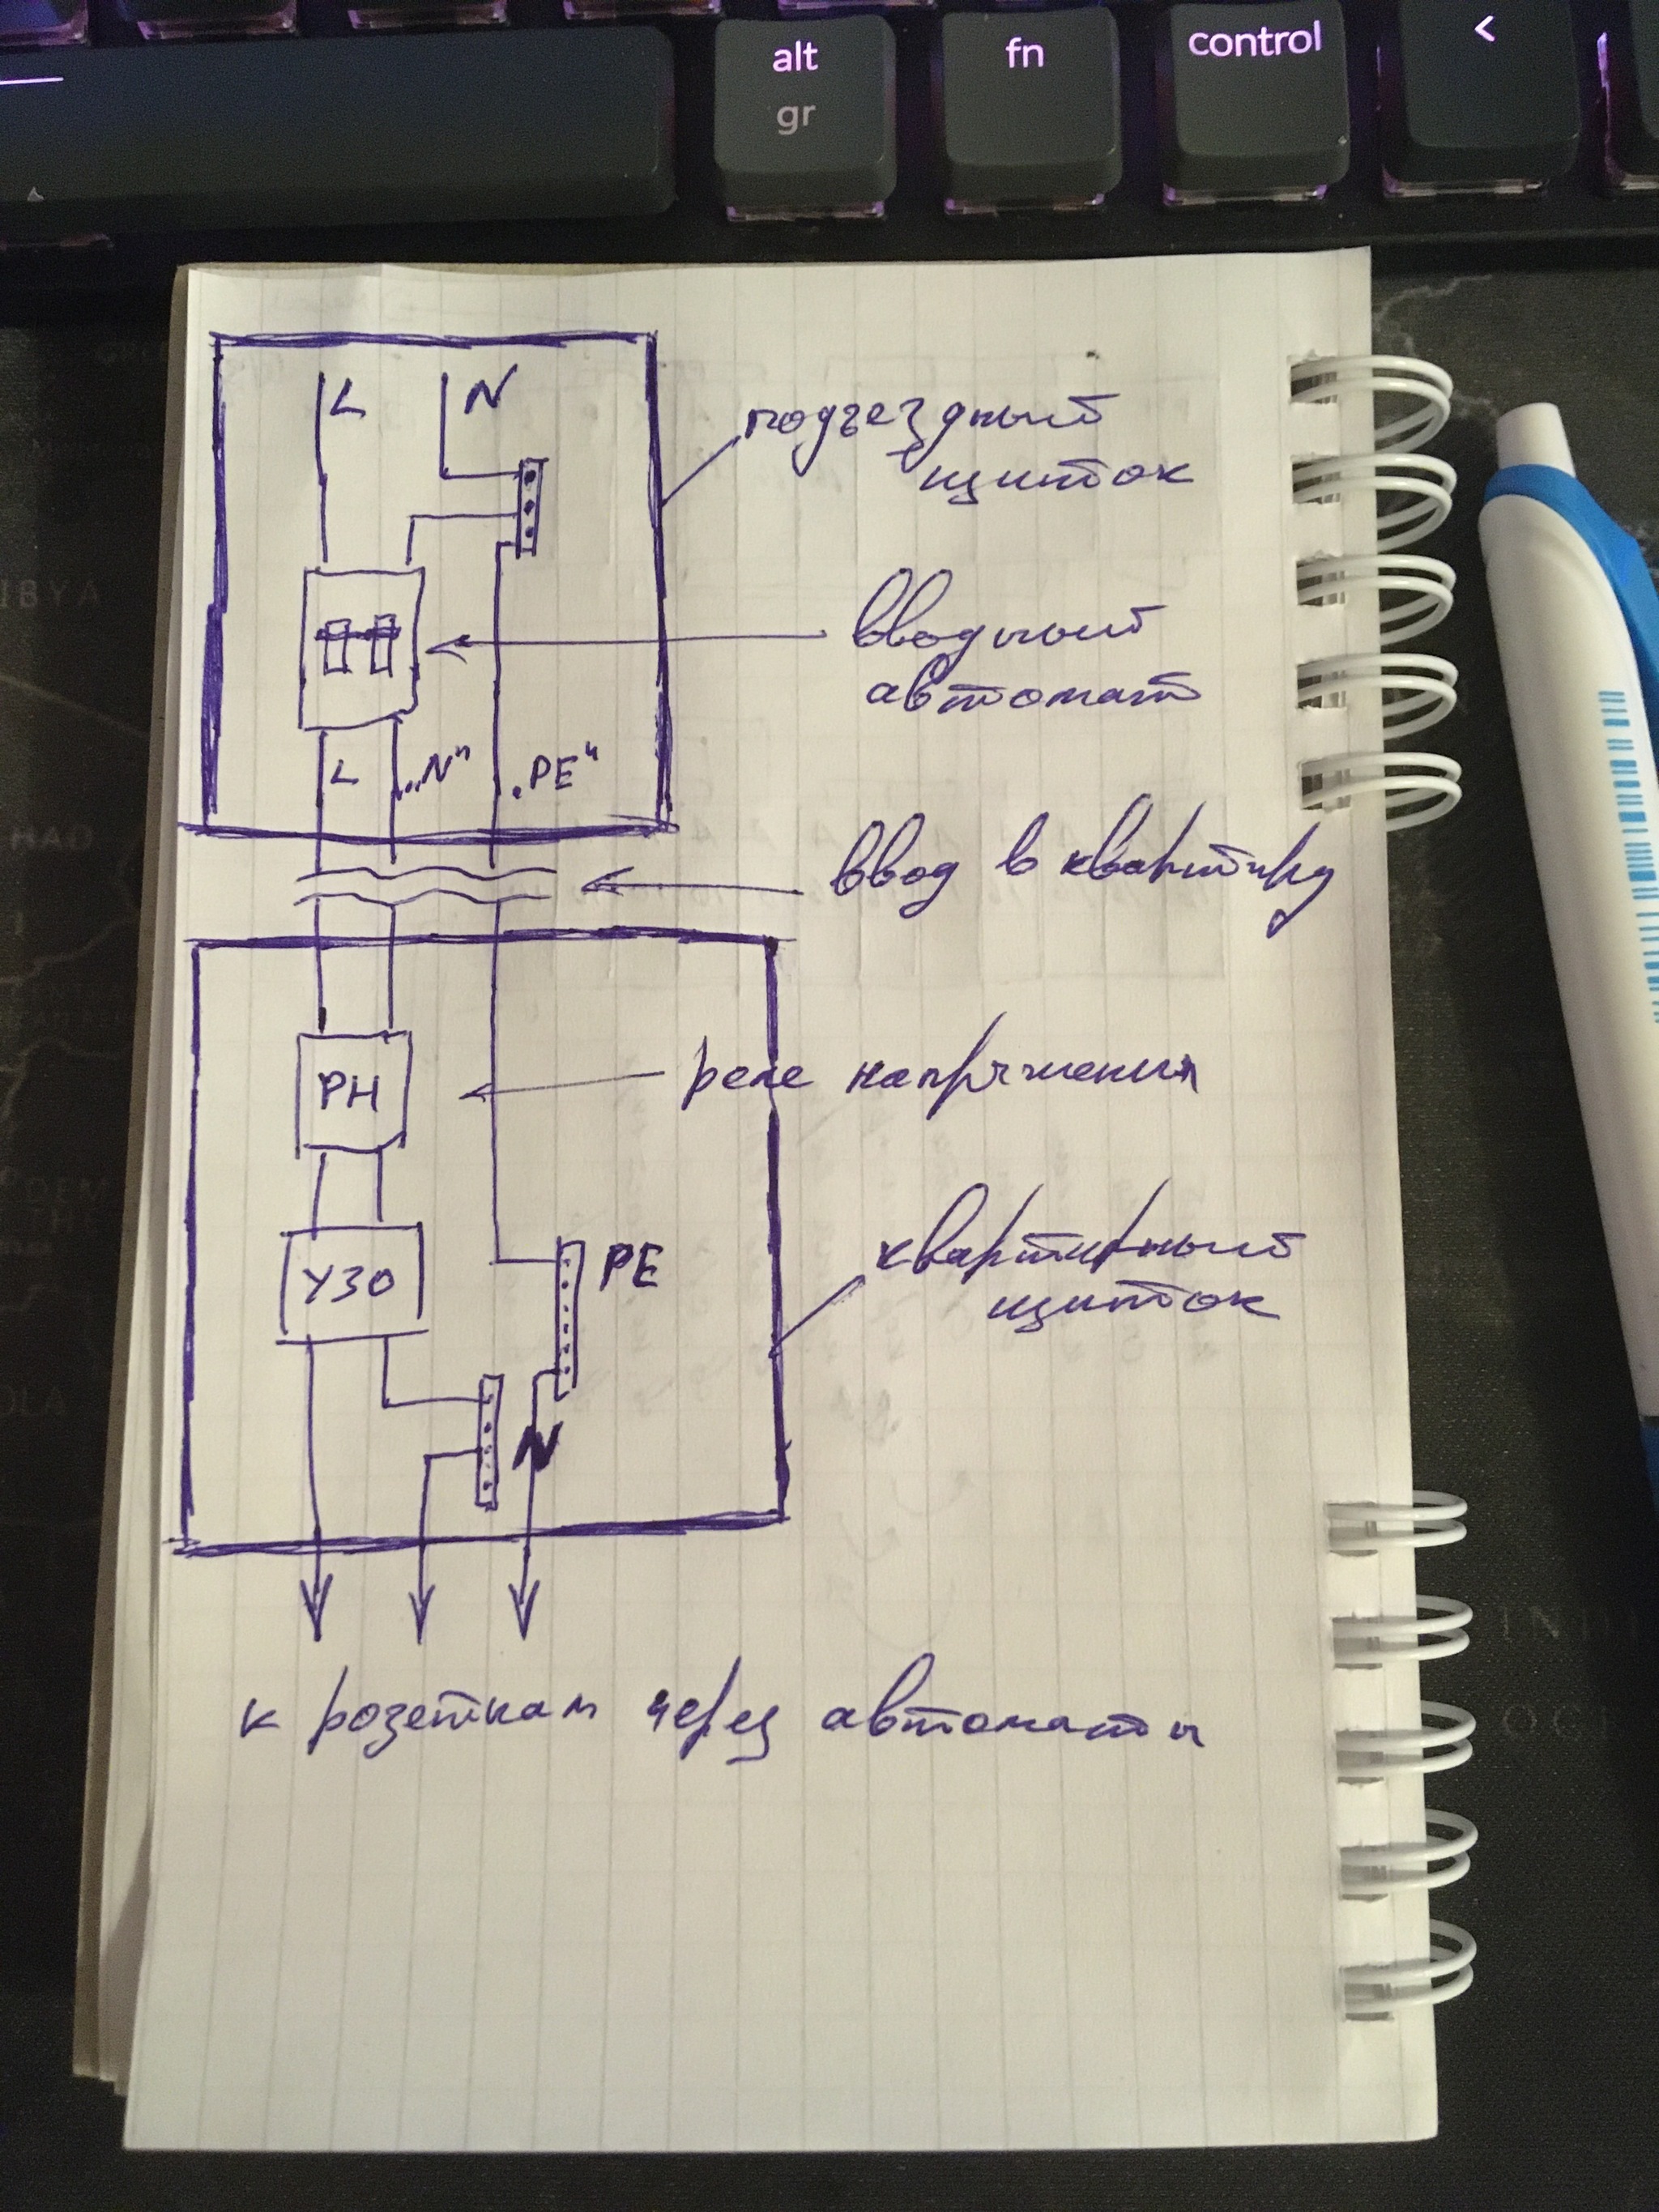 alt
gr
fn
control
<
L
N
подъездный
щиток
вводный
автомат
L
„N"
„PE"
ввод в квартиру
РН
реле напряжения
УЗО
PE
квартирный
щиток
N
к розеткам через автоматы